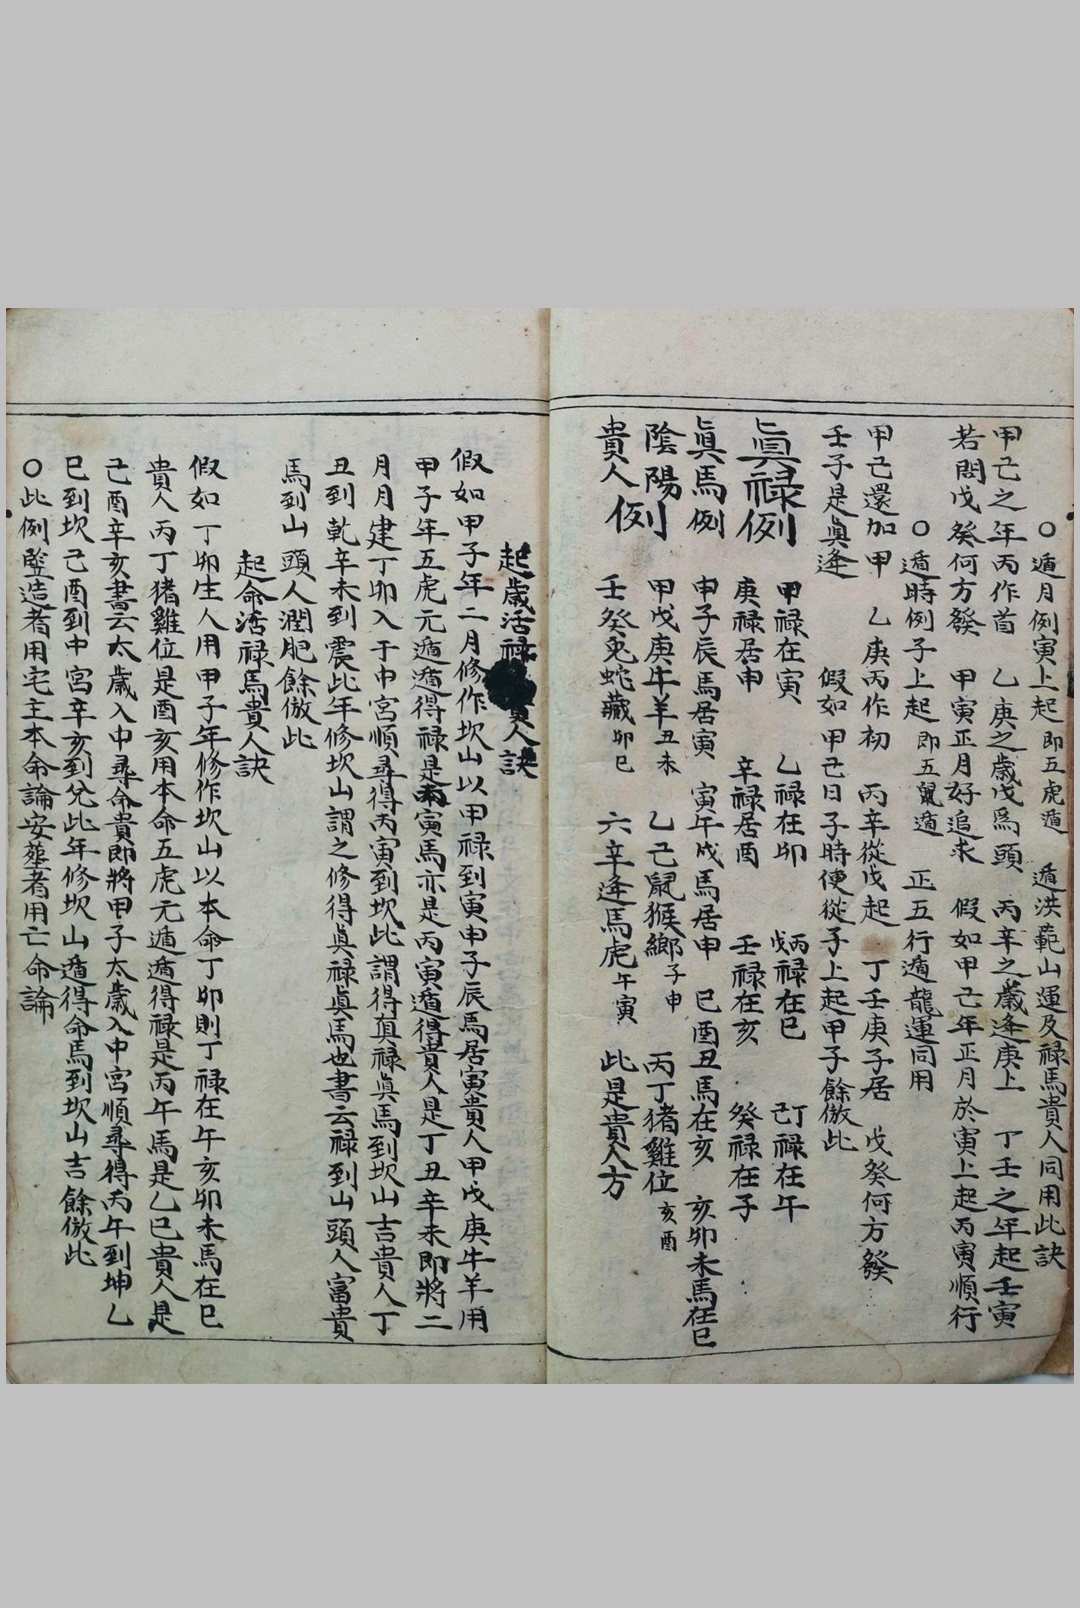 ○遁月例寅上起 即五虎遁 遁洪範山運及禄馬貴人同用此訣
甲己之年丙作首 乙庚之歲戊爲頭 丙辛之歲逢庚上 丁壬之年起壬寅
若問戊癸何方發 甲寅正月好追求 假如甲己年正月於寅上起丙寅順行
○遁時例子上起 即五鼠遁 正五行遁龍運同用
甲己還加甲 乙庚丙作初 丙辛從戊起 丁壬庚子居 戊癸何方發
壬子是眞逢 假如甲己日子時便從子上起甲子餘倣此
眞禄例 甲禄在寅 乙禄在卯 丙戊禄在巳 丁己禄在午
庚禄居申 辛禄居酉 壬禄在亥 癸禄在子
眞馬例 申子辰馬居寅 寅午戌馬居申 巳酉丑馬在亥 亥卯未馬在巳
陰陽貴人例 甲戊庚牛羊 丑未 乙己鼠猴鄉 子申 丙丁猪雞位 亥酉
壬癸兎蛇藏 卯巳 六辛逢馬虎 午寅 此是貴人方
起歲活禄貴人訣
假如甲子年二月修作坎山以甲禄到寅申子辰馬居寅貴人甲戊庚牛羊用
甲子年五虎元遁遁得禄是丙寅馬亦是丙寅遁得貴人是丁丑辛未即將二
月月建丁卯入于中宮順尋得丙寅到坎此謂得眞禄眞馬到坎山吉貴人丁
丑到乾辛未到震此年修坎山謂之修得眞禄眞馬也書云禄到山頭人富貴
馬到山頭人潤肥餘倣此
起命活禄馬貴人訣
假如丁卯生人用甲子年修作坎山以本命丁卯則丁禄在午亥卯未馬在巳
貴人丙丁猪雞位是酉亥用本命五虎元遁遁得禄是丙午馬是乙巳貴人是
己酉辛亥書云太歲入中尋命貴即將甲子太歲入中宮順尋得丙午到坤乙
巳到坎己酉到中宮辛亥到兌此年修坎山遁得命馬到坎山吉餘倣此
○此例竪造者用宅主本命論安葬者用亡命論